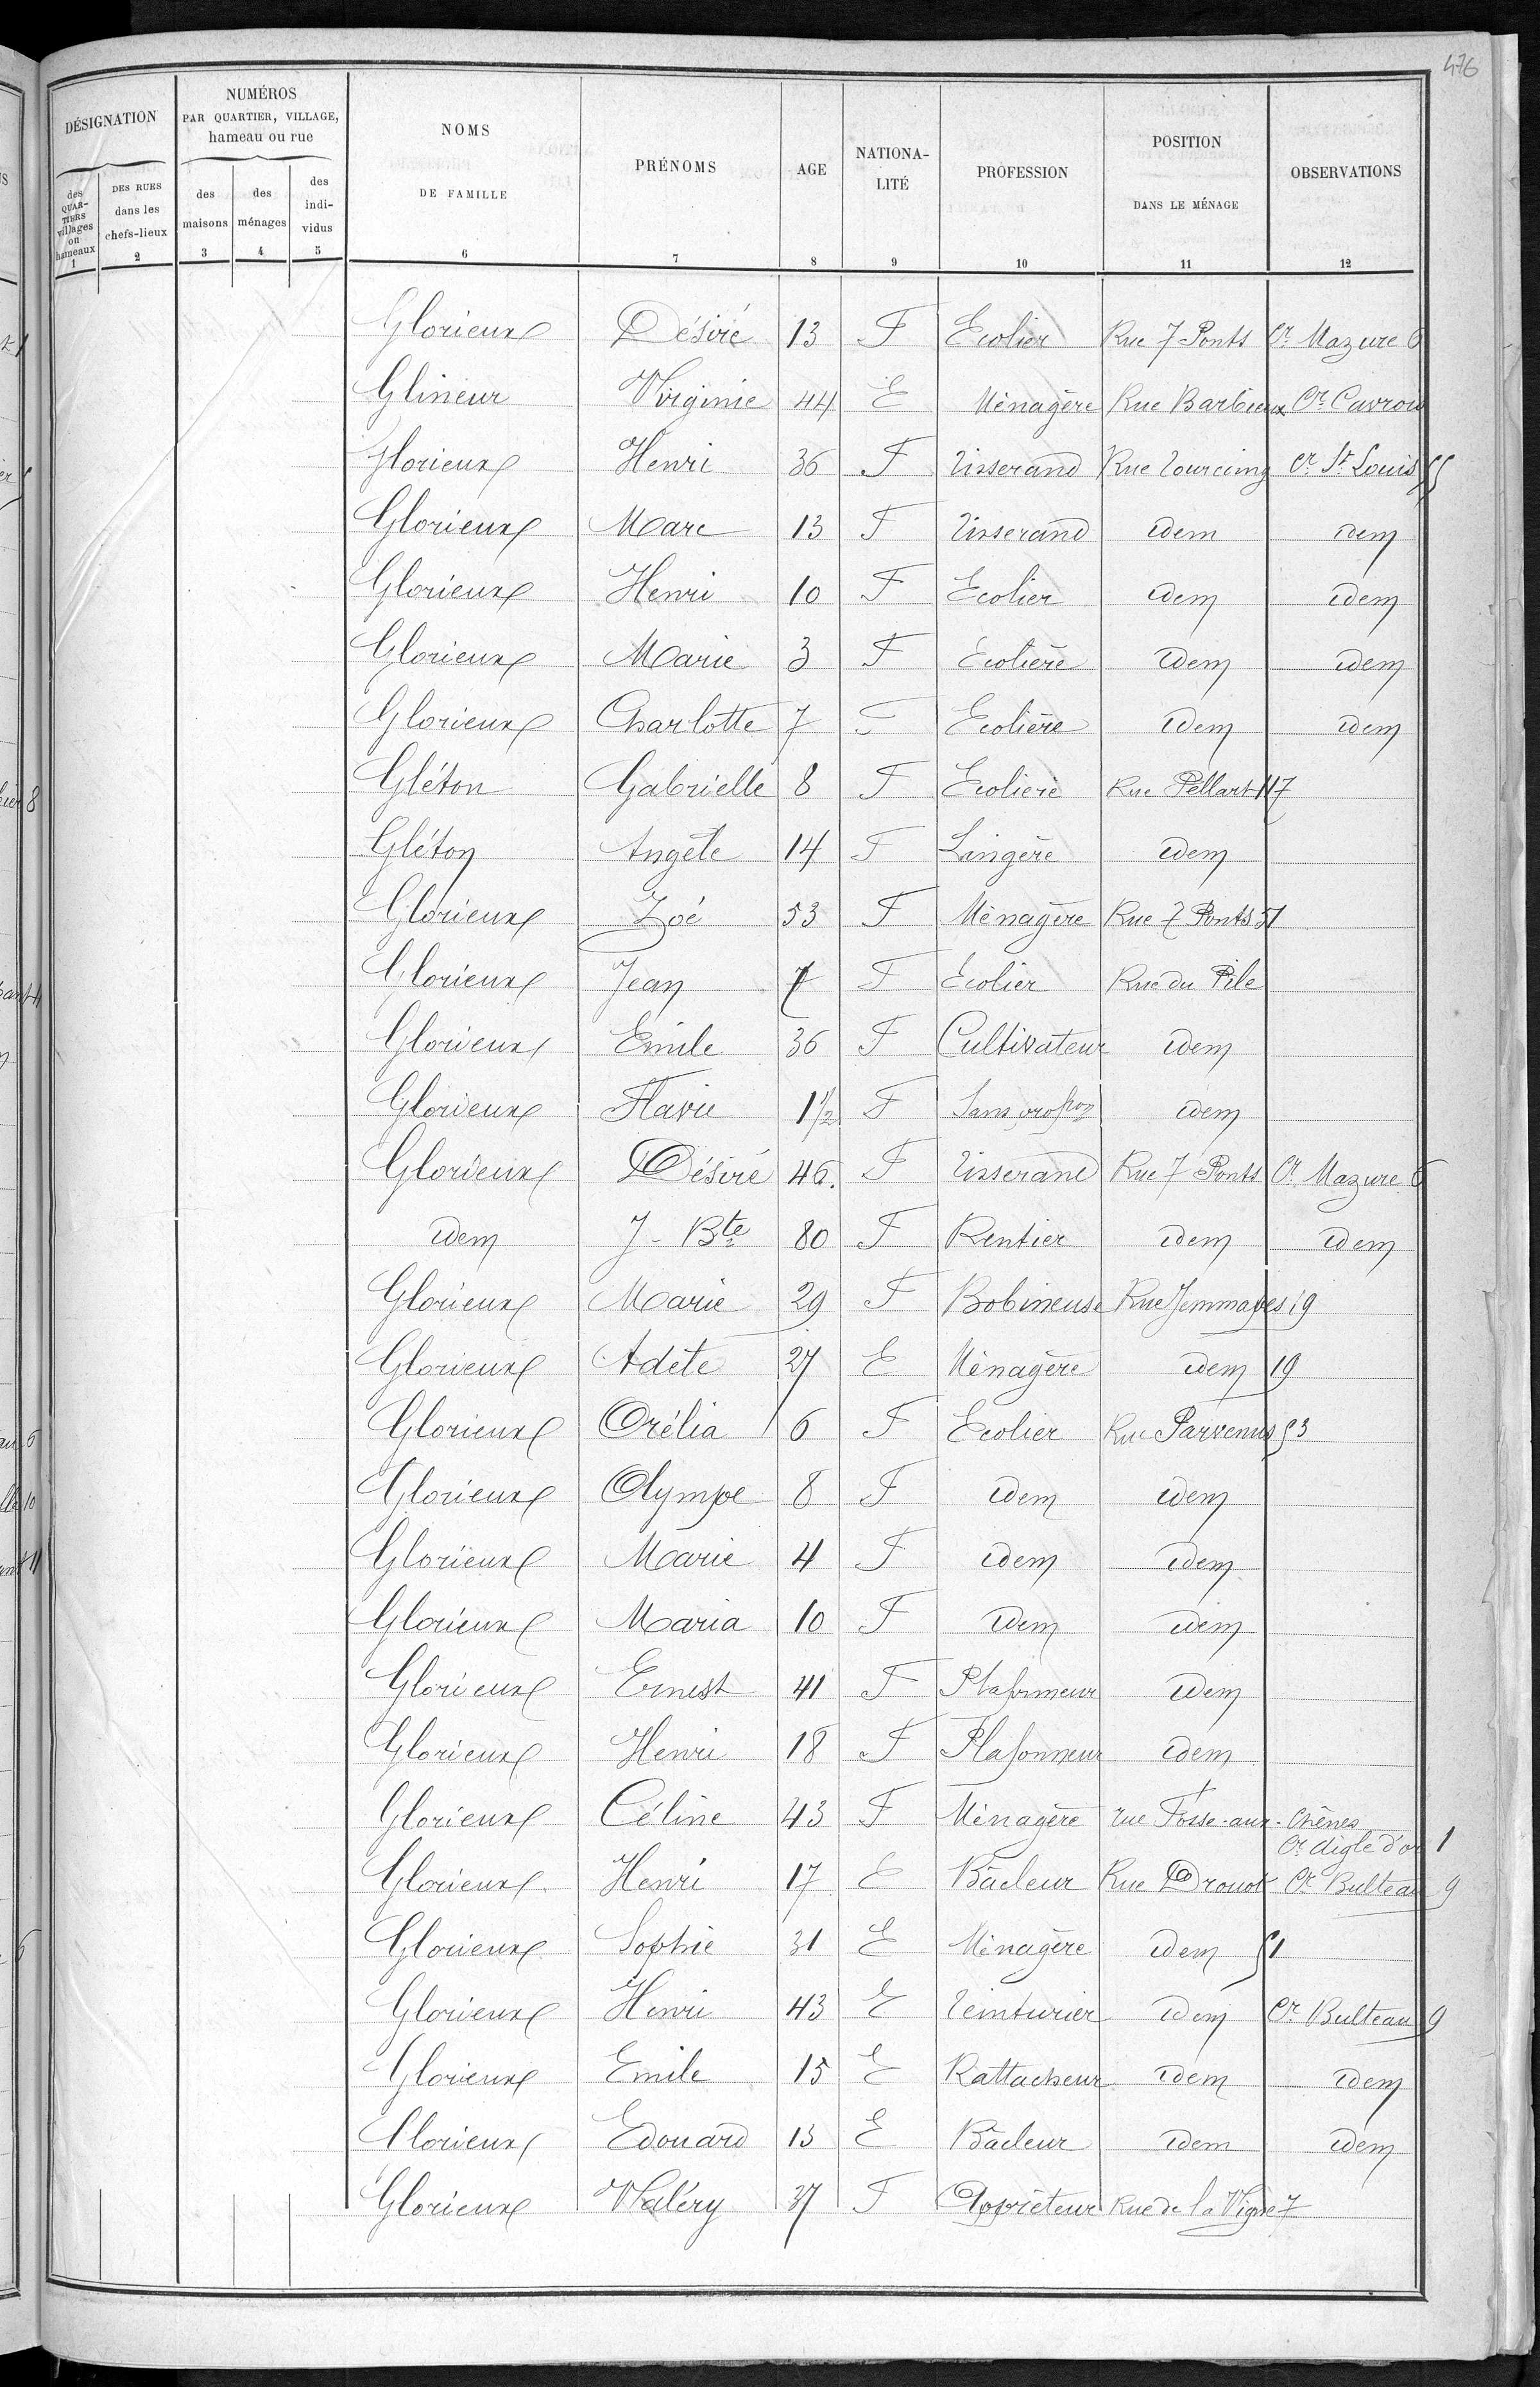 476
DÉSIGNATION
NUMÉROS
PAR QUARTIER, VILLAGE,
hameau ou rue
NOMS
DE FAMILLE
PRÉNOMS
AGE
NATIONA-
LITÉ
PROFESSION
POSITION
DANS LE MÉNAGE
OBSERVATIONS
des
QUAR-
TIERS
villages
ou
hameaux
DES RUES
dans les
chefs-lieux
des
maisons
des
ménages
des
indi-
vidus
1 2 3 4 5 6 7 8 9 10 11 12
Glorieux Désiré 13 F Ecolier Rue 7 Ponts Cr Mazure 6
Glineur Virginie 44 E Ménagère Rue Barbieux Cr Cavrois
Glorieux Henri 36 F Tisserand Rue Tourcoing Cr St Louis 55
Glorieux Marc 13 F Tisserand idem idem
Glorieux Henri 10 F Ecolier idem idem
Glorieux Marie 3 F Ecolière idem idem
Glorieux Charlotte 7 F Ecolière idem idem
Gléton Gabrielle 8 F Ecolière Rue Pellart 117
Gléton Angèle 14 F Lingère idem
Glorieux Zoé 53 F Ménagère Rue 7 Ponts 51
Glorieux Jean 7 F Ecolier Rue du Pile
Glorieux Emile 36 F Cultivateur idem
Glorieux Flavie 1 1/2 F Sans profon idem
Glorieux Désiré 46. F Tisserand Rue 7 Ponts Cr Mazure 6
idem J-Bte 80 F Rentier idem idem
Glorieux Marie 29 F Bobineuse Rue Jemmapes 19
Glorieux Adèle 27 E Ménagère idem 19
Glorieux Orélia 6 F Ecolier Rue Parvenus 53
Glorieux Olympe 8 F idem idem
Glorieux Marie 4 F idem idem
Glorieux Maria 10 F idem idem
Glorieux Ernest 41 F Plafonneur idem
Glorieux Henri 18 F Plafonneur idem
Glorieux Céline 43 F Ménagère rue Fosse-aux-Chênes
Cr Aigle d'or 1
Glorieux Henri 17 E Bâcleur Rue Drouot Cr Bulteau 9
Glorieux Sophie 31 E Ménagère idem 51
Glorieux Henri 43 E Teinturier idem Cr Bulteau 9
Glorieux Emile 15 E Rattacheur idem idem
Glorieux Edouard 13 E Bâcleur idem idem
Glorieux Valéry 37 F Apprêteur Rue de la Vigne 7